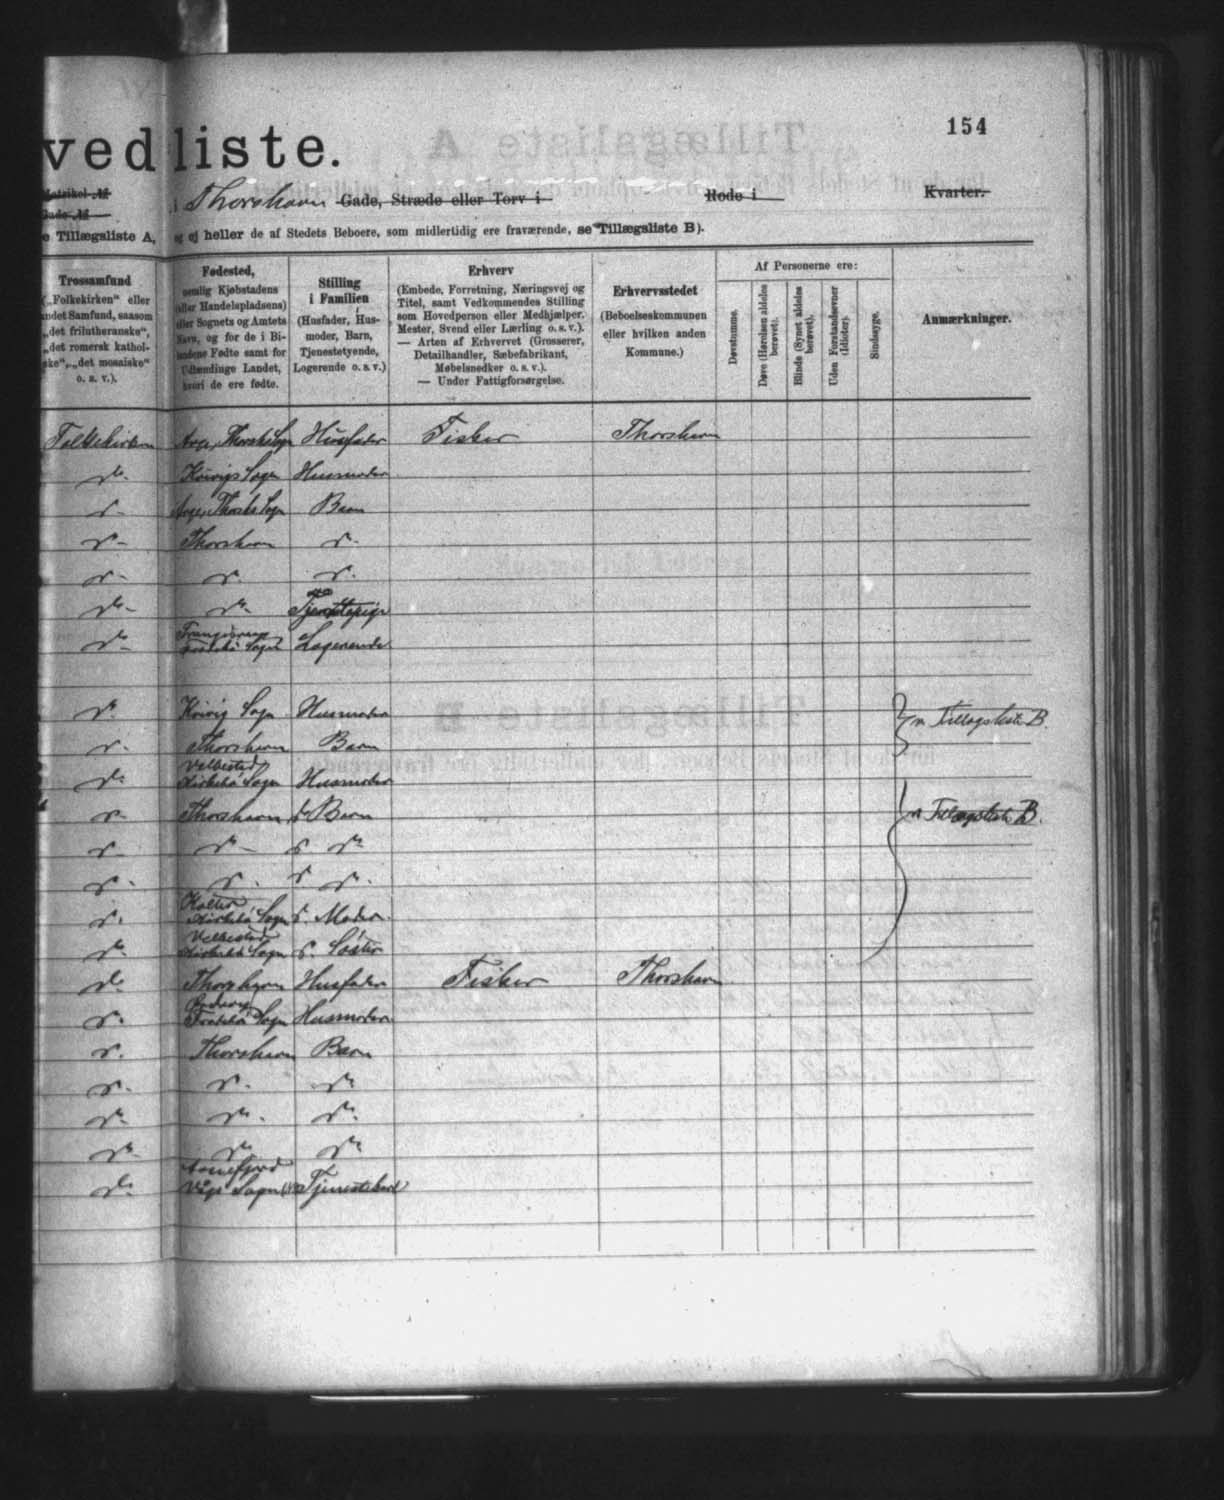 154
vedliste.
Matrikel № i Thorshavn Gade, Stræde eller Torv i Rode i Kvarter.
Gade №
e Tillægsliste A, og ej heller de af Stedets Beboere, som midlertidig ere fraværende, se Tillægsliste B).
Trossamfund
(„Folkekirken“ eller
andet Samfund, saasom
„det frilutheranske“,
„det romersk kathol-
ske“, „det mosaiske“
o. s. v.).
Fødested,
nemlig Kjøbstadens
(eller Handelspladsens)
eller Sognets og Amtets
Navn, og for de i Bi-
landene Fødte samt for
Udlændinge Landet,
hvori de ere fødte.
Stilling
i Familien
(Husfader, Hus-
moder, Barn,
Tjenestetyende,
Logerende o. s. v.)
Erhverv
(Embede, Forretning, Næringsvej og
Titel, samt Vedkommendes Stilling
som Hovedperson eller Medhjælper.
Mester, Svend eller Lærling o. s. v.).
— Arten af Erhvervet (Grosserer,
Detailhandler, Sæbefabrikant,
Møbelsnedker o. s. v.).
— Under Fattigforsørgelse.
Erhvervsstedet
(Beboelseskommunen
eller hvilken anden
Kommune.)
Af Personerne ere:
Døvstumme.
Døve (Hørelsen aldeles
berøvet).
Blinde (Synet aldeles
berøvet).
Uden Forstandsevner
(Idioter).
Sindssyge.
Anmærkninger.
Folkekirken Husfader Fisker Thorshavn
do Sogn Husmoder
do Sogn Barn
do Thorshavn do
do do do
do do Tjenestepige
do Sogn Logerende
do Sogn Husmoder Tillægsliste B.
do Thorshavn Barn
Velbestad
do Kirkebø Sogn Husmoder
do Thorshavn Barn Tillægsliste B.
do do do
do do do
Kolter
do Kirkebø Sogn Moder
Velbestad
do Kirkebø Sogn Søster
do Thorshavn Husfader Fisker Thorshavn
do Sogn Husmoder
do Thorshavn Barn
do do do
do do do
do do do
do Vågs Sogn